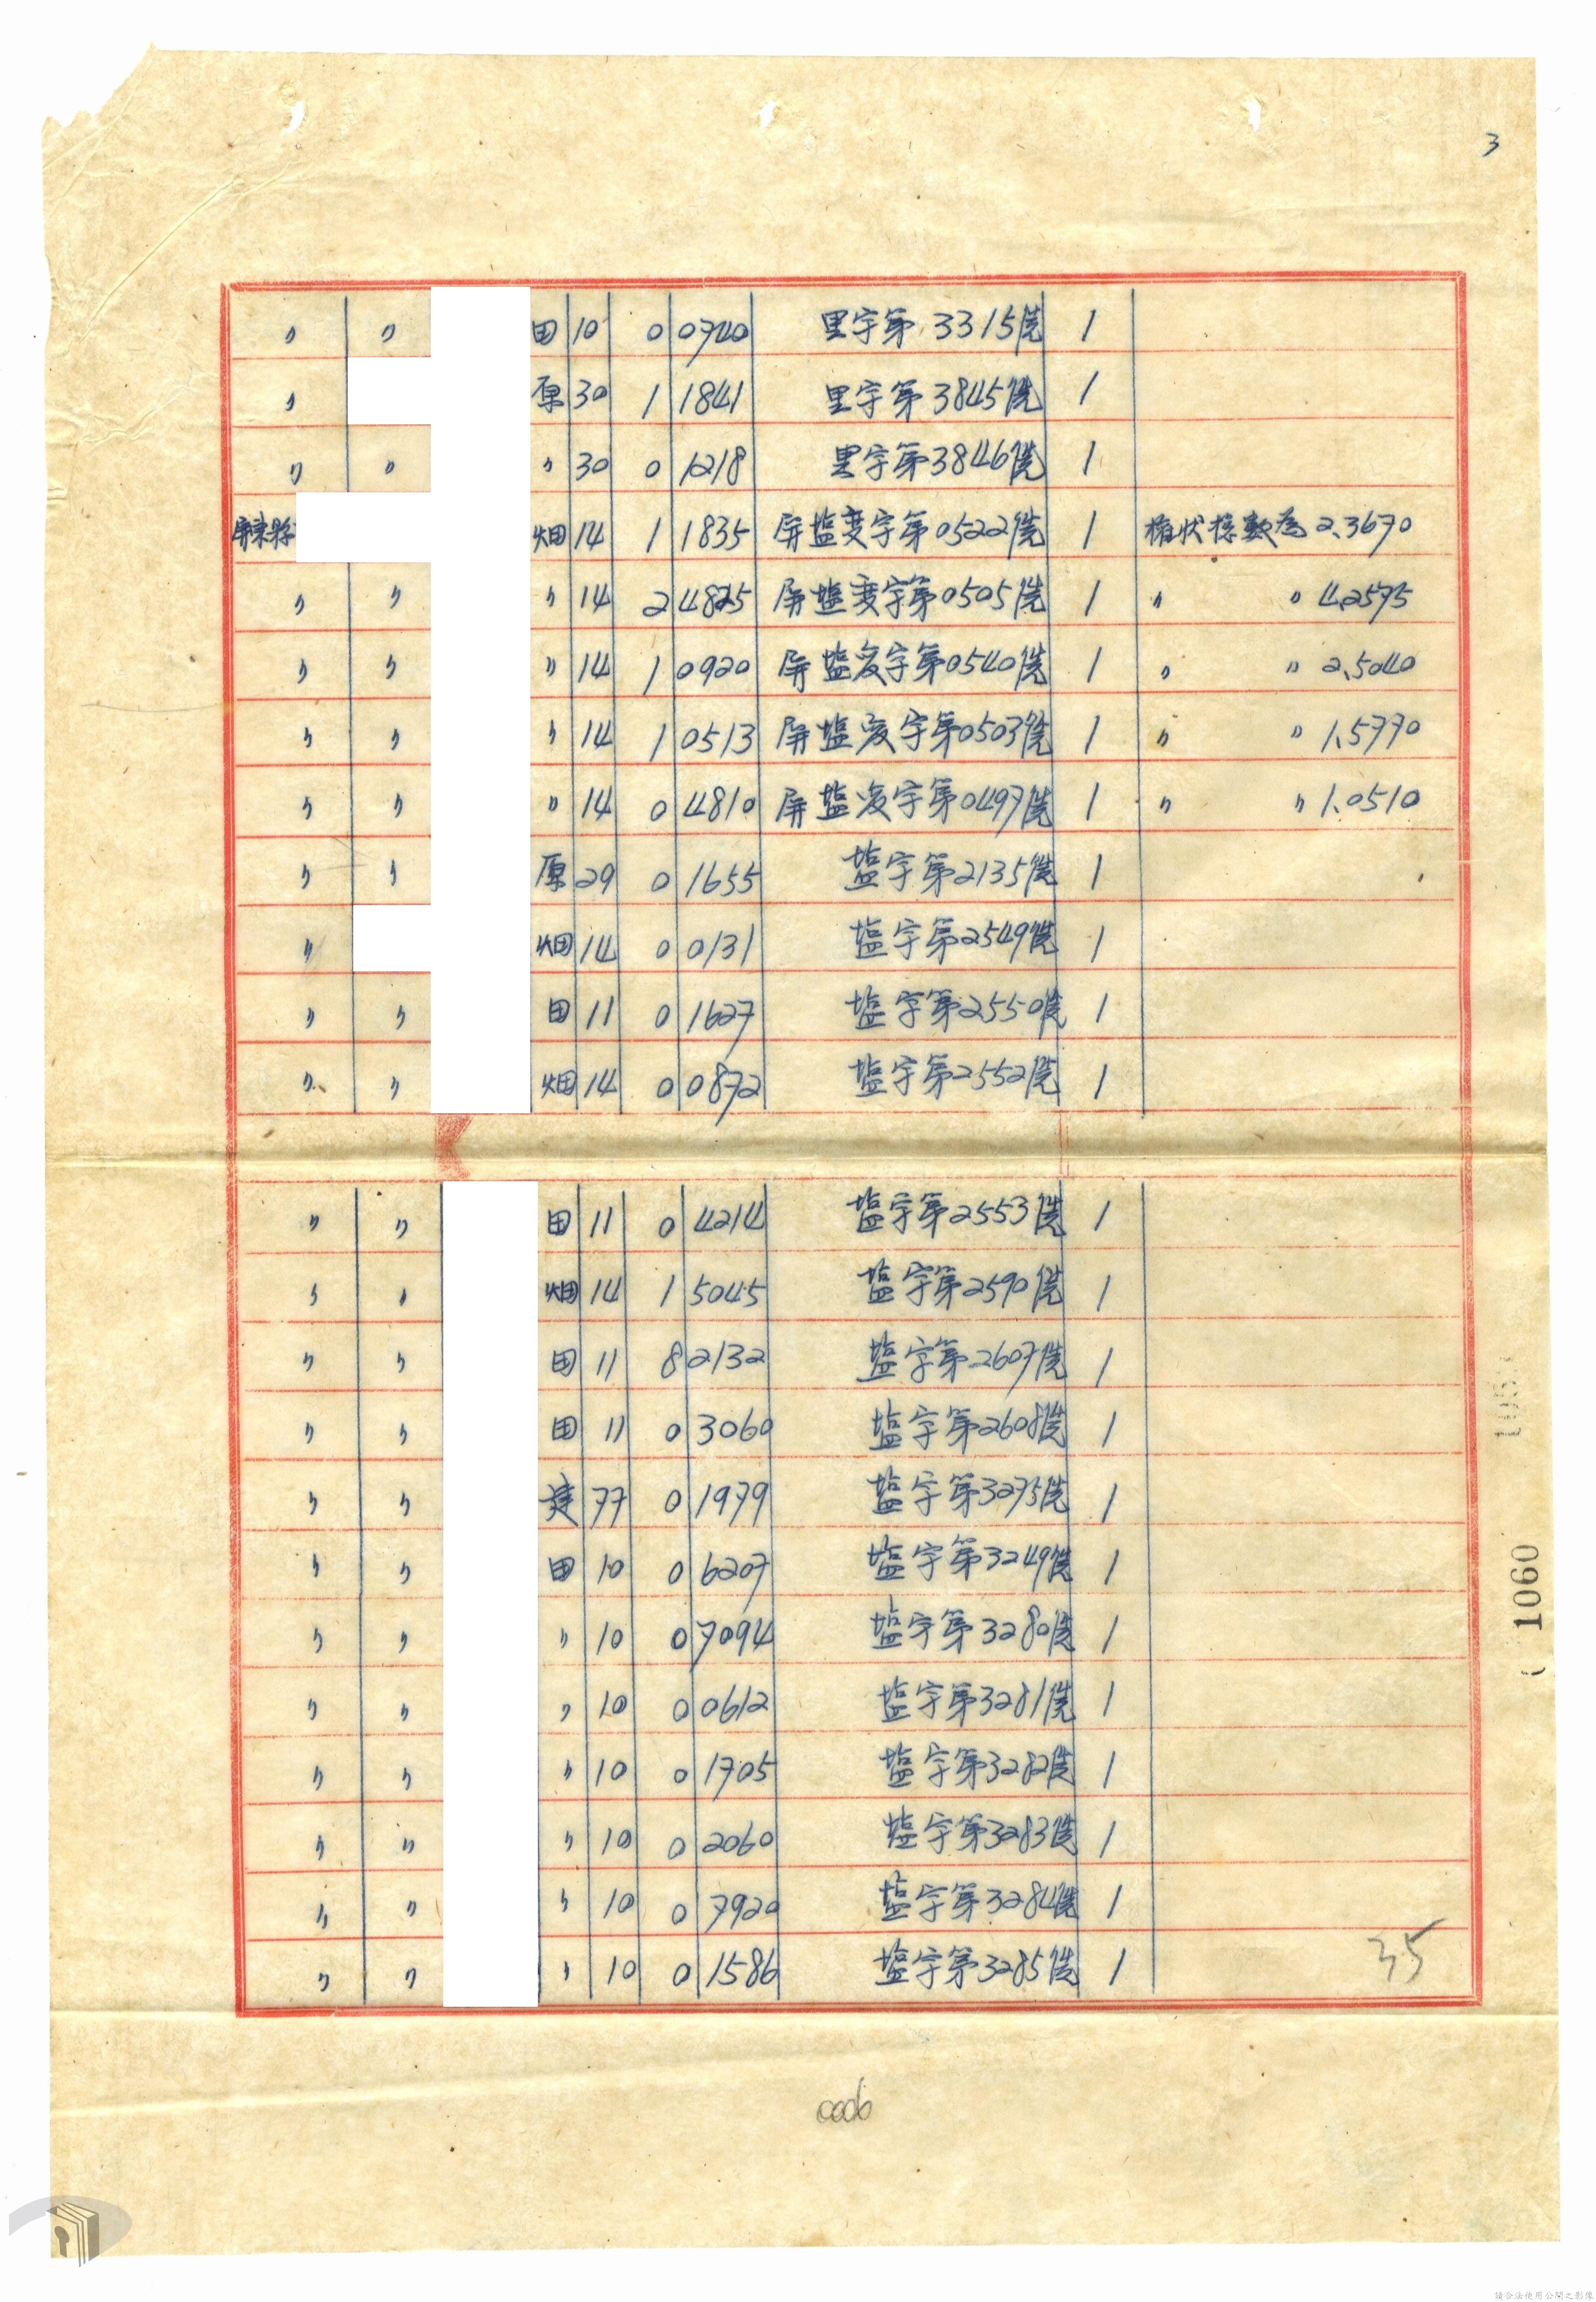 3
〃 〃 田 10 0 0740 里字第3315號 1
〃 原 30 1 1841 里字第3845號 1
〃 〃 〃 30 0 1218 里字第3846號 1
屏東縣 畑 14 1 1835 屏塩変字第0522號 1 権狀楤數為 2.3670
〃 〃 〃 14 2 4825 屏塩変字第0505號 1 〃 〃 4.2575
〃 〃 〃 14 1 0920 屏塩変字第0540號 1 〃 〃 2.5040
〃 〃 〃 14 1 0513 屏塩変字第0503號 1 〃 〃 1.5770
〃 〃 〃 14 0 4810 屏塩変字第0497號 1 〃 〃 1.0510
〃 〃 原 29 0 1655 塩字第2135號 1
〃 畑 14 0 0131 塩字第2549號 1
〃 〃 田 11 0 1627 塩字第2550號 1
〃 〃 畑 14 0 0872 塩字第2552號 1
〃 〃 田 11 0 4214 塩字第2553號 1
〃 〃 畑 14 1 5045 塩字第2590號 1
〃 〃 田 11 8 2132 塩字第2607號 1
〃 〃 田 11 0 3060 塩字第2608號 1
〃 〃 建 77 0 1979 塩字第3275號 1
〃 〃 田 10 0 6207 塩字第3249號 1
〃 〃 〃 10 0 7094 塩字第3280號 1
〃 〃 〃 10 0 0612 塩字第3281號 1
〃 〃 〃 10 0 1705 塩字第3282號 1
〃 〃 〃 10 0 2060 塩字第3283號 1
〃 〃 〃 10 0 7920 塩字第3284號 1
〃 〃 〃 10 0 1586 塩字第3285號 1
35
1060
0006
請合法使用公開之影像